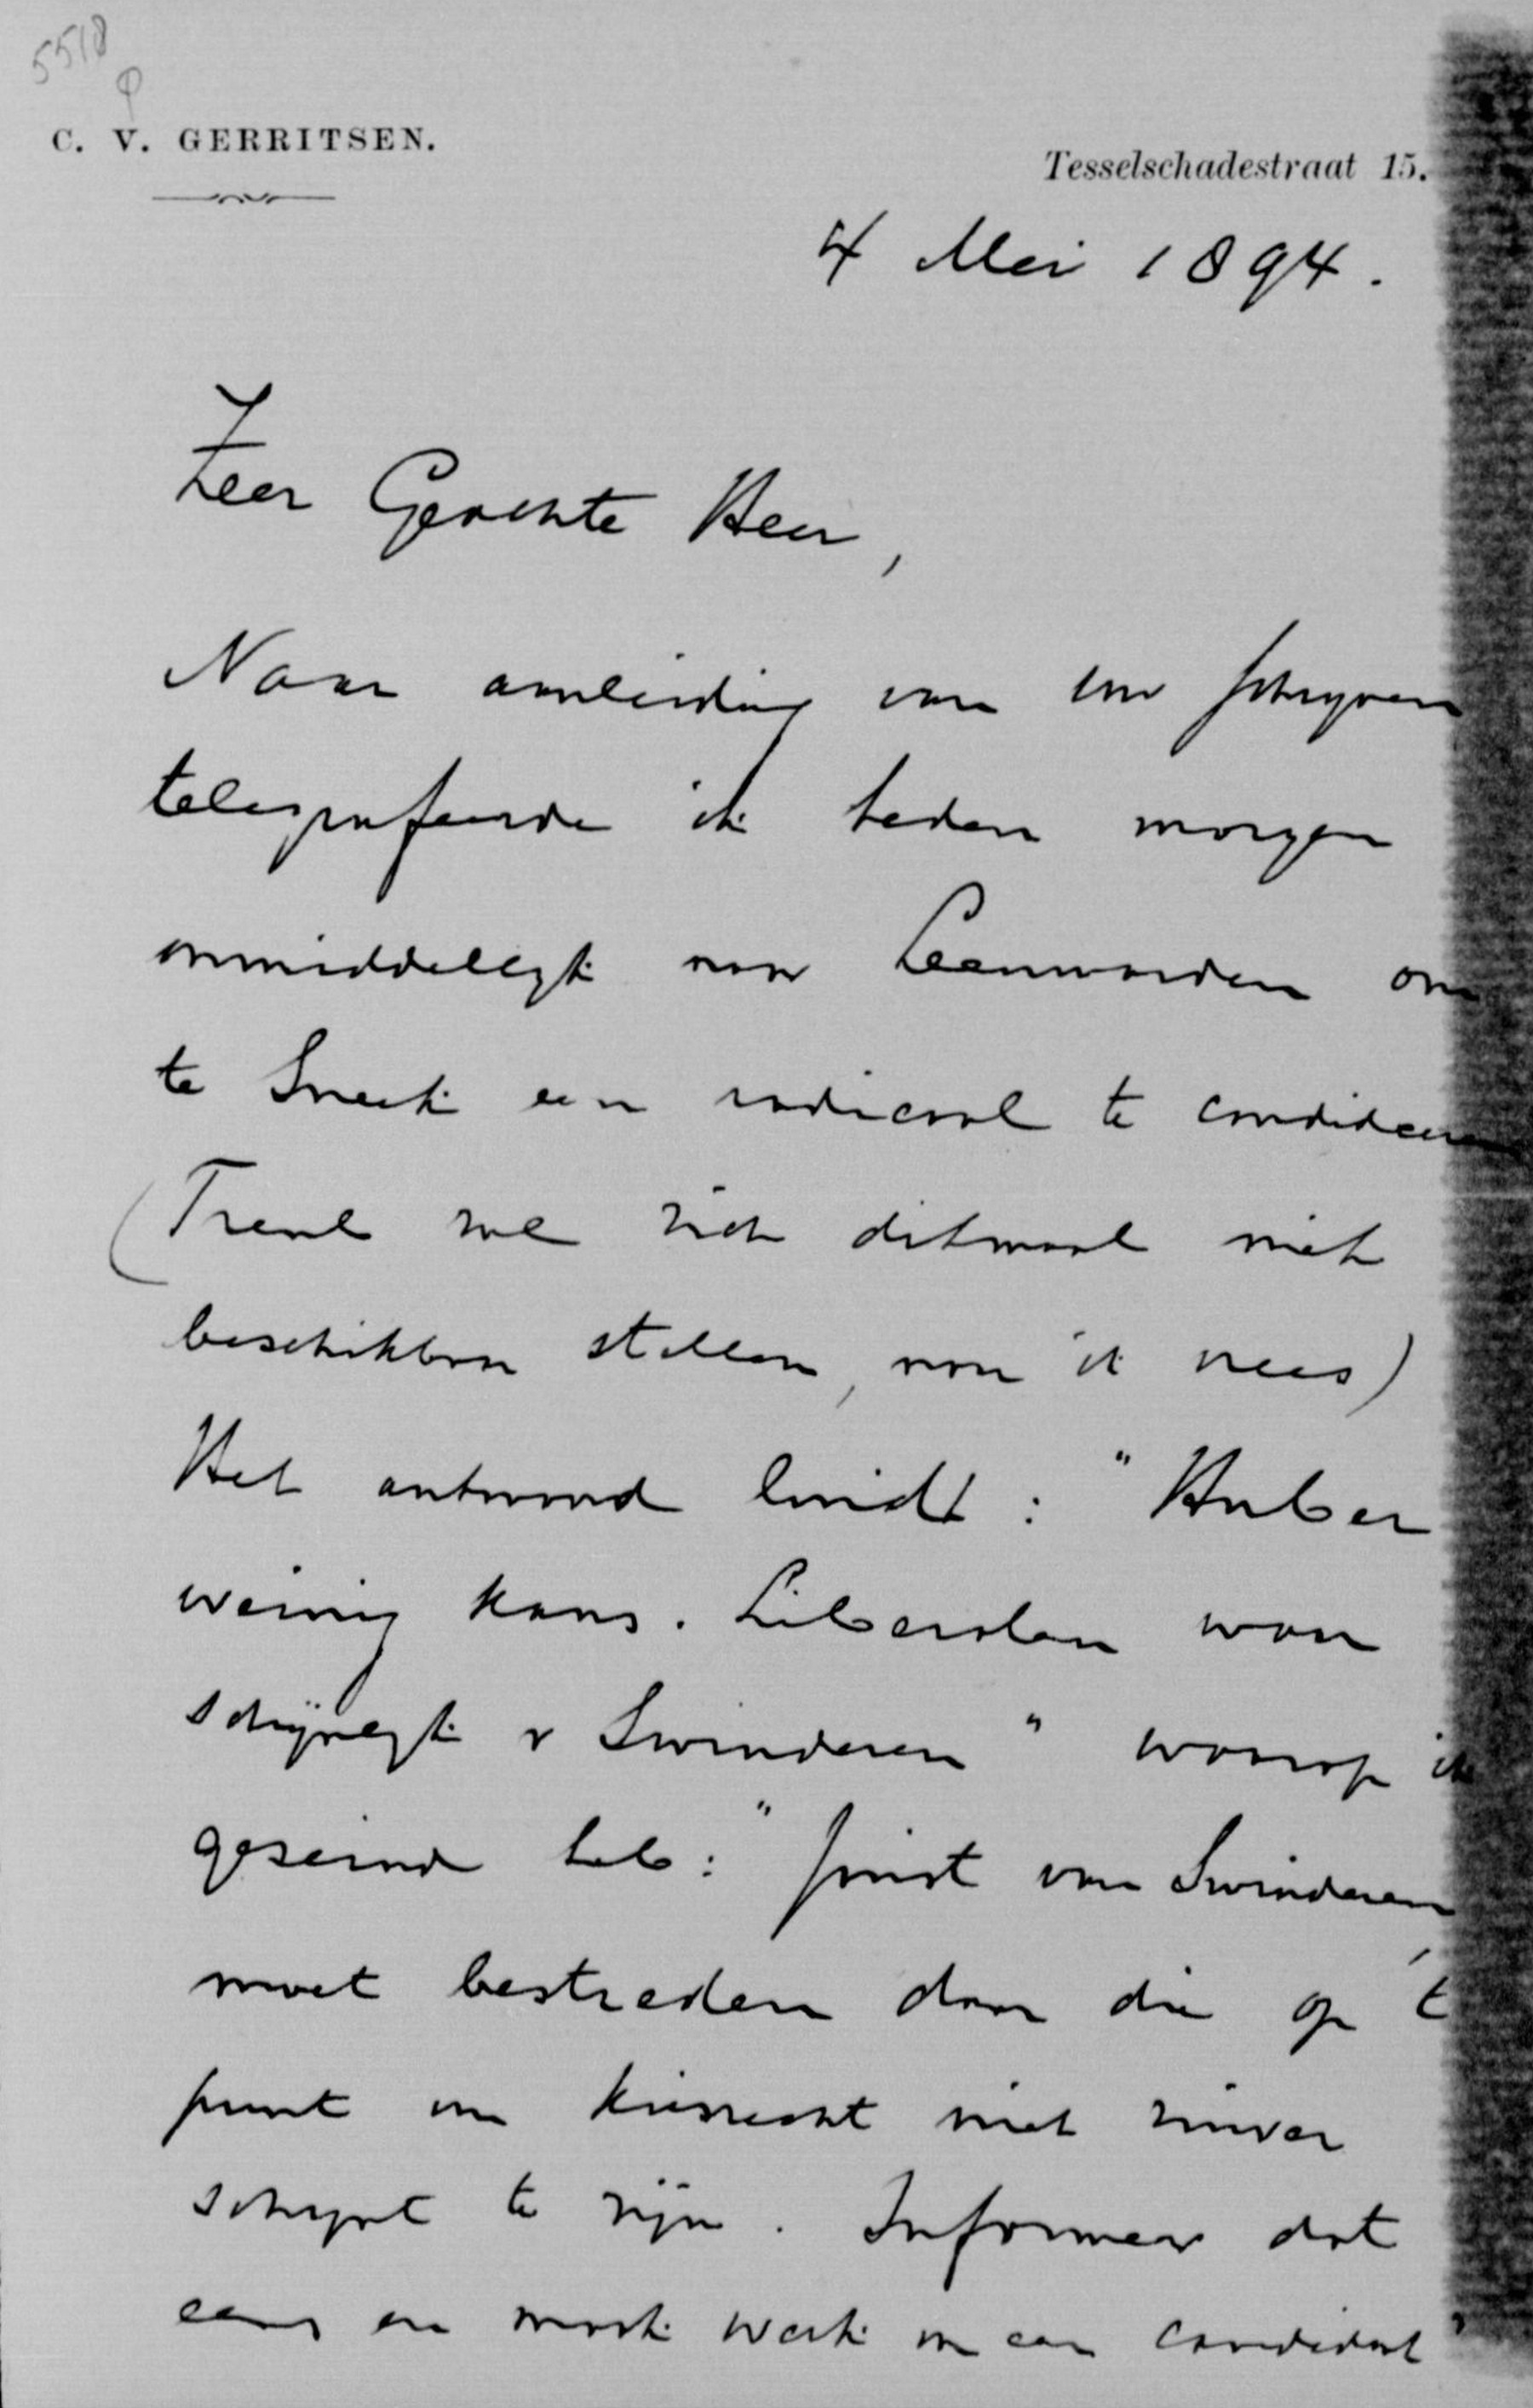 5518
C. V. GERRITSEN.
Tesselschadestraat 15.
4 Mei 1894.
Zeer Geachte Heer,
Naar aanleiding van uw schrijven
telegrafeerde ik heden morgen
onmiddellijk naar Leeuwarden om
te Sneek een radicaal te candideeren
(Treub zal zich ditmaal niet
beschikbaar stellen, naar ik vrees)
Het antwoord luidt: "Huber
weinig kans. Liberalen waar
schijnlijk v Swinderen" waarop ik
geseind heb: "Juist van Swinderen
moet bestreden daar die op 't
punt van kiesrecht niet zuiver
schijnt te zijn. Informeer dat
eens en maak werk van een candidaat"